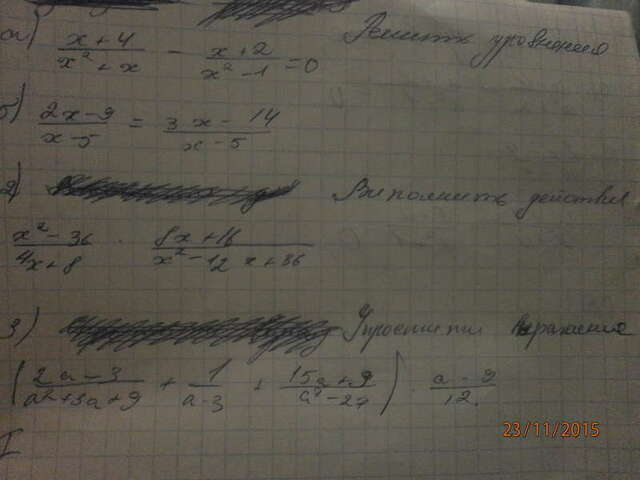 а) x+4/x²+x − x+2/x²−1 = 0 Решить уровнение
б) 2x−9/x−5 = 3x−14/x−5
2) Выполнить действия
x²−36/4x+8 · 8x+16/x²−12x+36
3) Упростити выражение
(2a−3/a²+3a+9 + 1/a−3 + 15a+9/a³−27) · a−9/12
23/11/2015